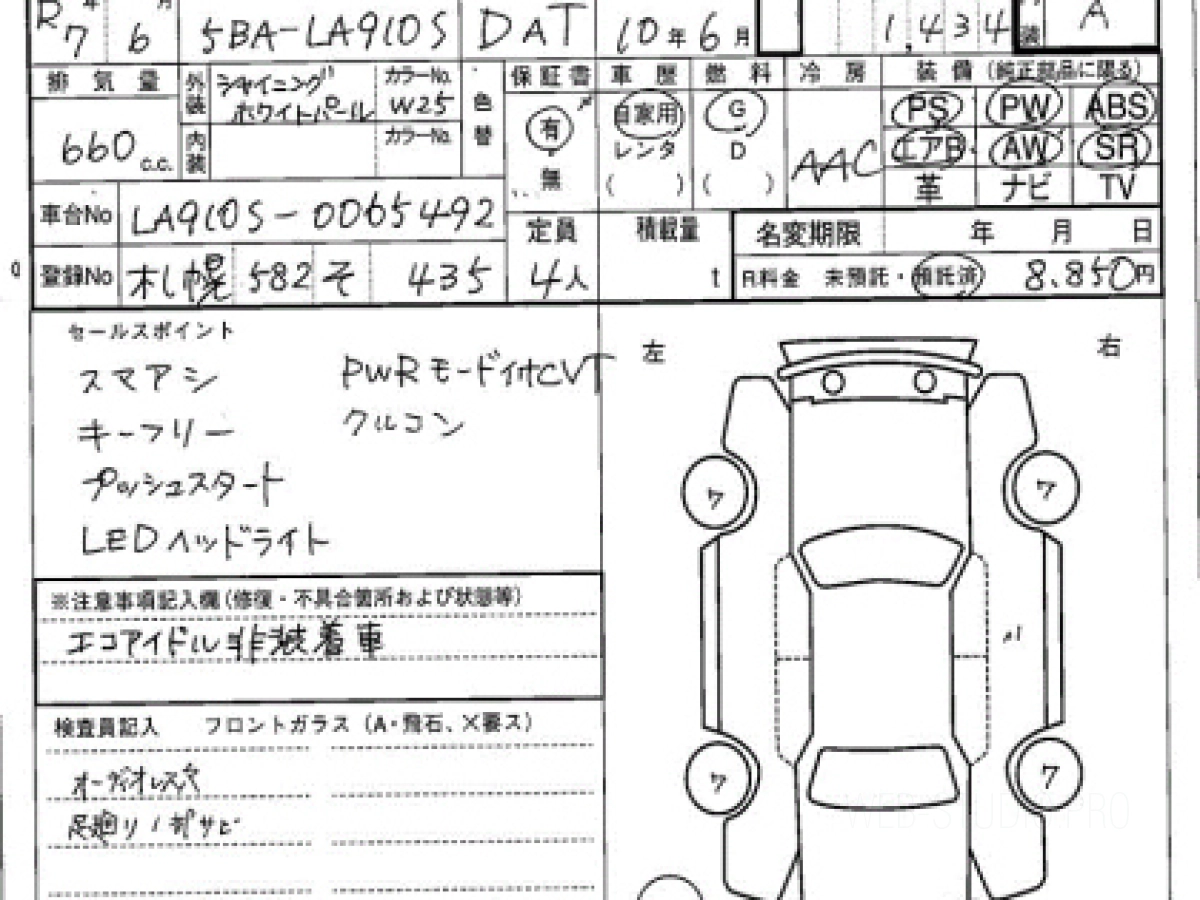 R 7 年 6 月 5BA-LA910S DAT 10年6月 1,434 装 A
排気量 外装 シャイニング ホワイトパール カラーNo. W25 色替 保証書 車歴 燃料 冷房 装備 (純正部品に限る)
660 c.c. 内装 カラーNo. 有 自家用 G AAC PS PW ABS
レンタ D エアB AW SR
無 ( ) ( ) 革 ナビ TV
車台No LA910S-0065492 定員 積載量 名変期限 年 月 日
登録No 札幌 582 そ 435 4人 t R料金 未預託・預託済 8.850円
セールスポイント 左 右
スマアシ PWRモード付CVT
キーフリー クルコン
プッシュスタート
LEDヘッドライト
ワ ワ
※注意事項記入欄(修復・不具合箇所および状態等)
エコアイドル非装着車
検査員記入 フロントガラス (A・飛石、X要ス)
オーディオレス穴
足廻り/部サビ
ワ ワ
WEB STUDIO PRO